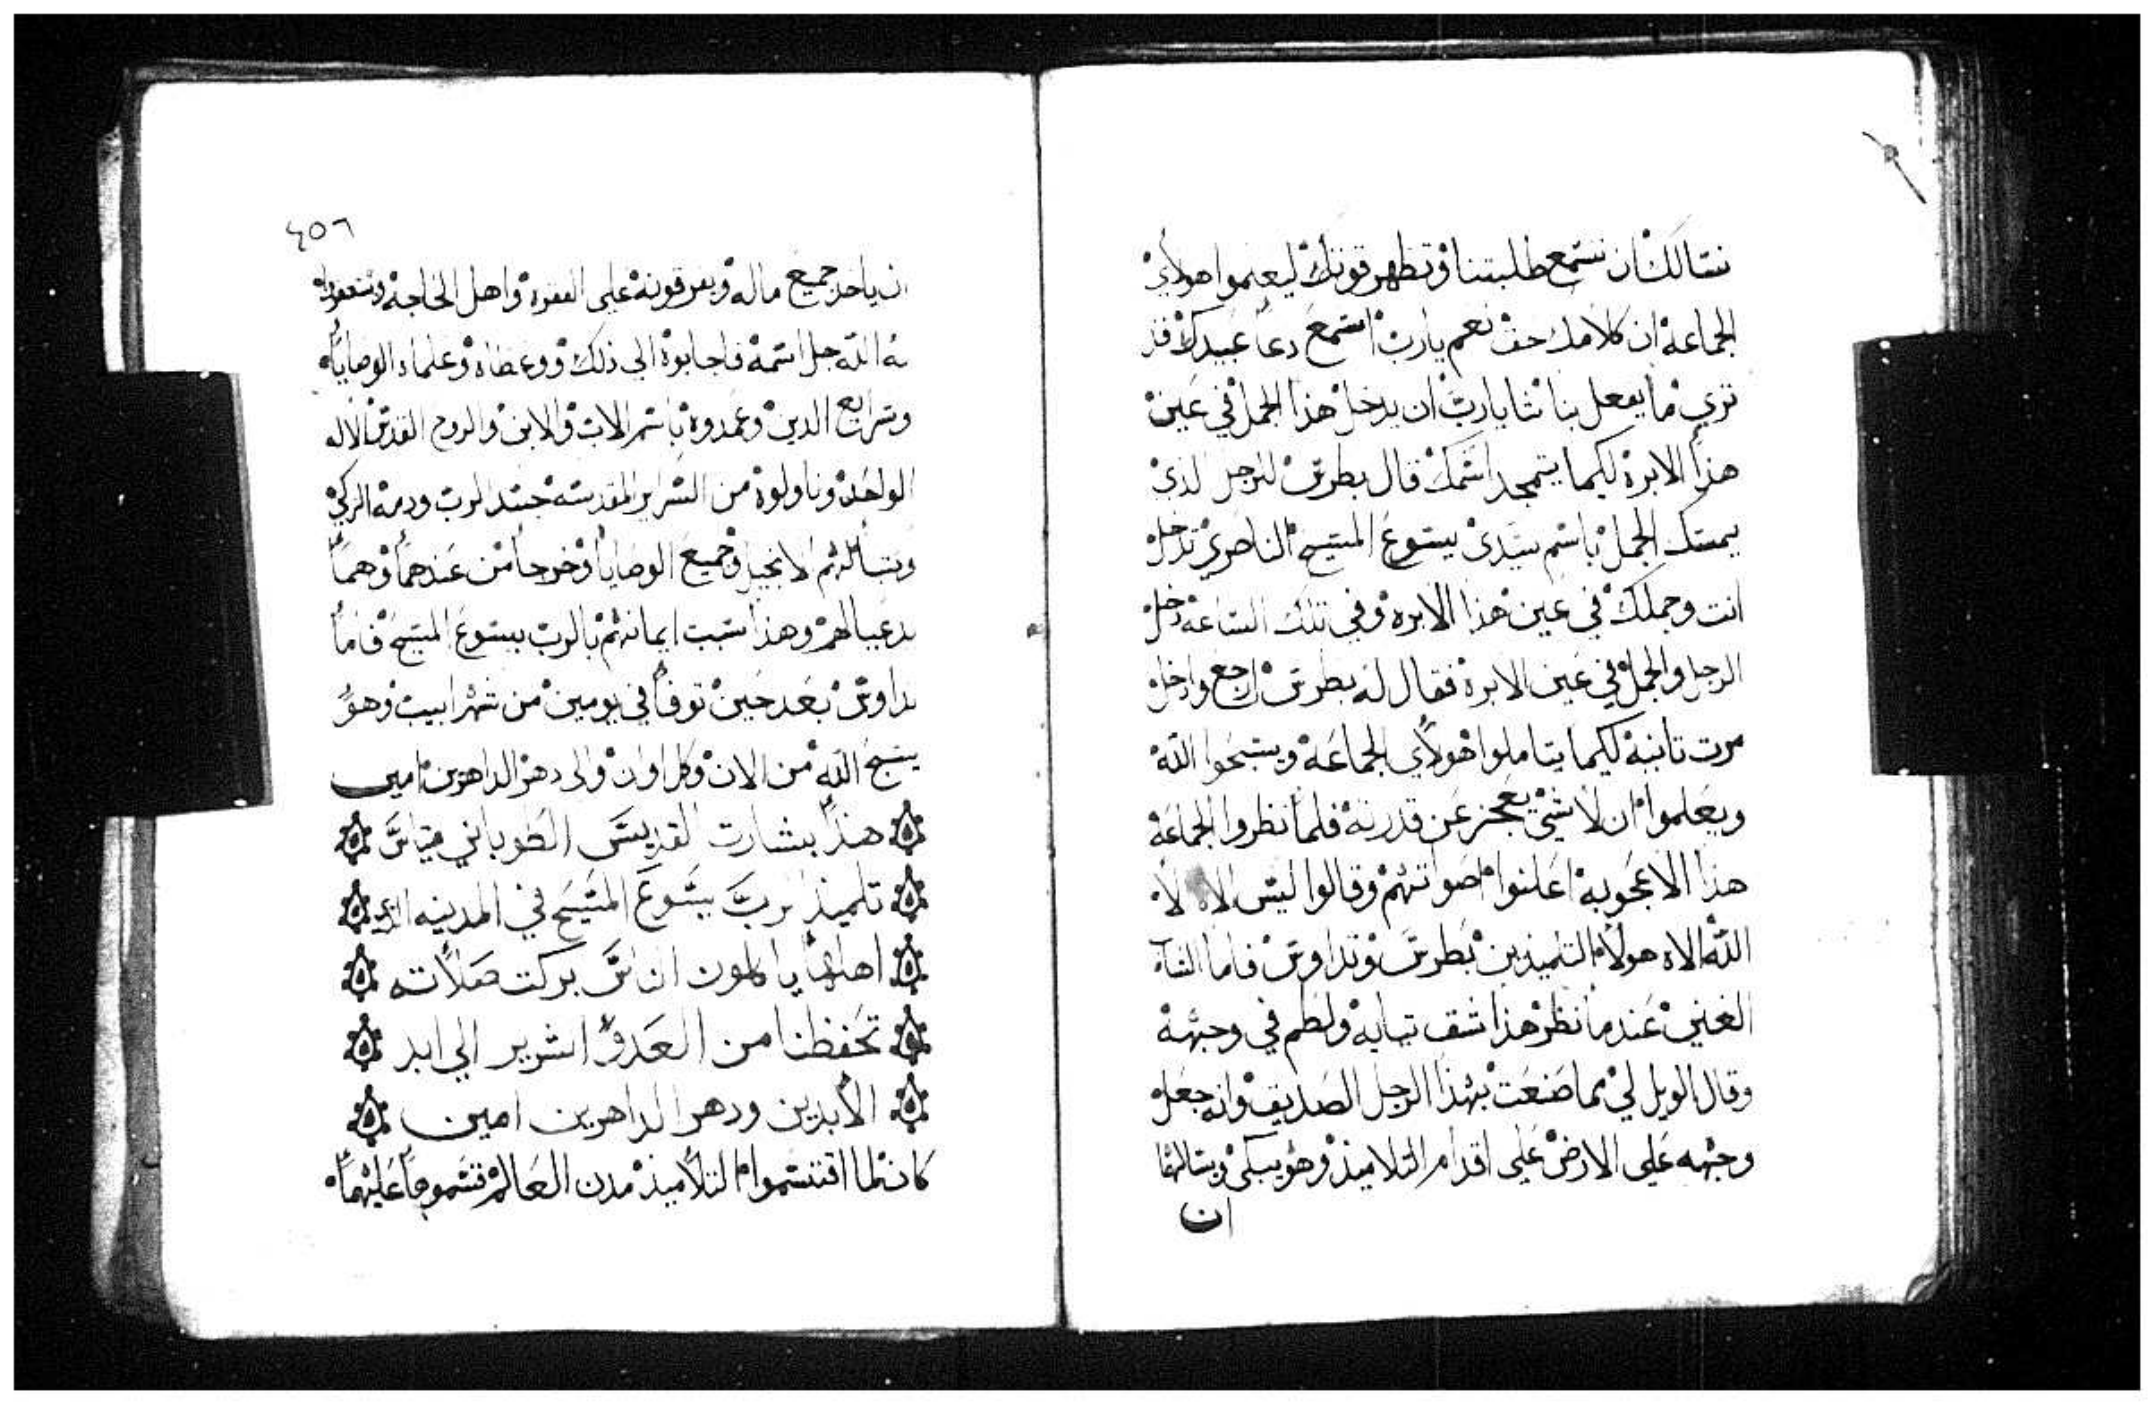 نسالك ان تستمع طلبتنا وتظهر قوتك ليعلموا هولاي
الجماعة ان كلامك حق نعم يارب استمع دعا عبيدك
تري ما يفعل بنا نشا يارب ان يدخل هذا الجمل في عين
هذا الابرة لكيما يتمجد اسمك قال بطرس للرجل الذي
يمسك الجمل باسم سيدي يسوع المسيح الناصري تدخل
انت وجملك في عين هذا الابره وفي تلك الساعة دخل
الرجل والجمل في عين الابرة فقال له بطرس ارجع وادخل
مرت تانية لكيما يتاملوا هولاي الجماعة ويسبحوا الله
ويعلموا ان لا شي يعجز عن قدرته فلما نظروا الجماعة
هذا الاعجوبة اعلنوا اصواتهم وقالوا ليس الاه الا
الله الاه هولاء التلميذين بطرس وتداوس فاما الشاب
الغني عندما نظر هذا شق تيابه ولطم في وجهه
وقال الويل لي بما صنعت بهذا الرجل الصديق وانه جعل
وجهه علي الارض علي اقدام التلاميذ وهو يبكي ويسالهما
ان
٤٥٦
ان ياخد جميع ماله ويفرقونه علي الفقره واهل الحاجة
الله جل اسمه فاجابوه الي ذلك ووعظاه وعلماه الوصايا
وشرايع الدين وعمدوه باسم الاب والابن والروح القدس الاله
الواحد وناولوه من السراير المقدسه جسد الرب ودمه الزكي
الانجيل وجميع الوصايا وخرجا من عندهما وهما
يدعيا لهم وهذا سبب ايمانهم بالرب يسوع المسيح فاما
تداوس بعد حين توفا في يومين من شهر ابيب وهو
يسبح الله من الان وكل اوان والي دهر الداهرين امين
هذا بشارت القديس الطوباني متياس
تلميذ الرب يسوع المسيح في المدينه الذي
اهلها ياكلون الناس بركت صلاته
تحفظنا من العدو الشرير الي ابد
الأبدين ودهر الداهرين امين
كان لما اقتسموا التلاميذ مدن العالم عليهما